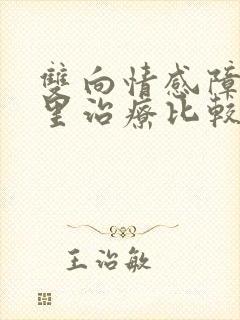 雙向情感障
里治療比較
王治敏